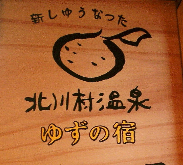 新しゅうなった
北川村温泉
ゆずの宿